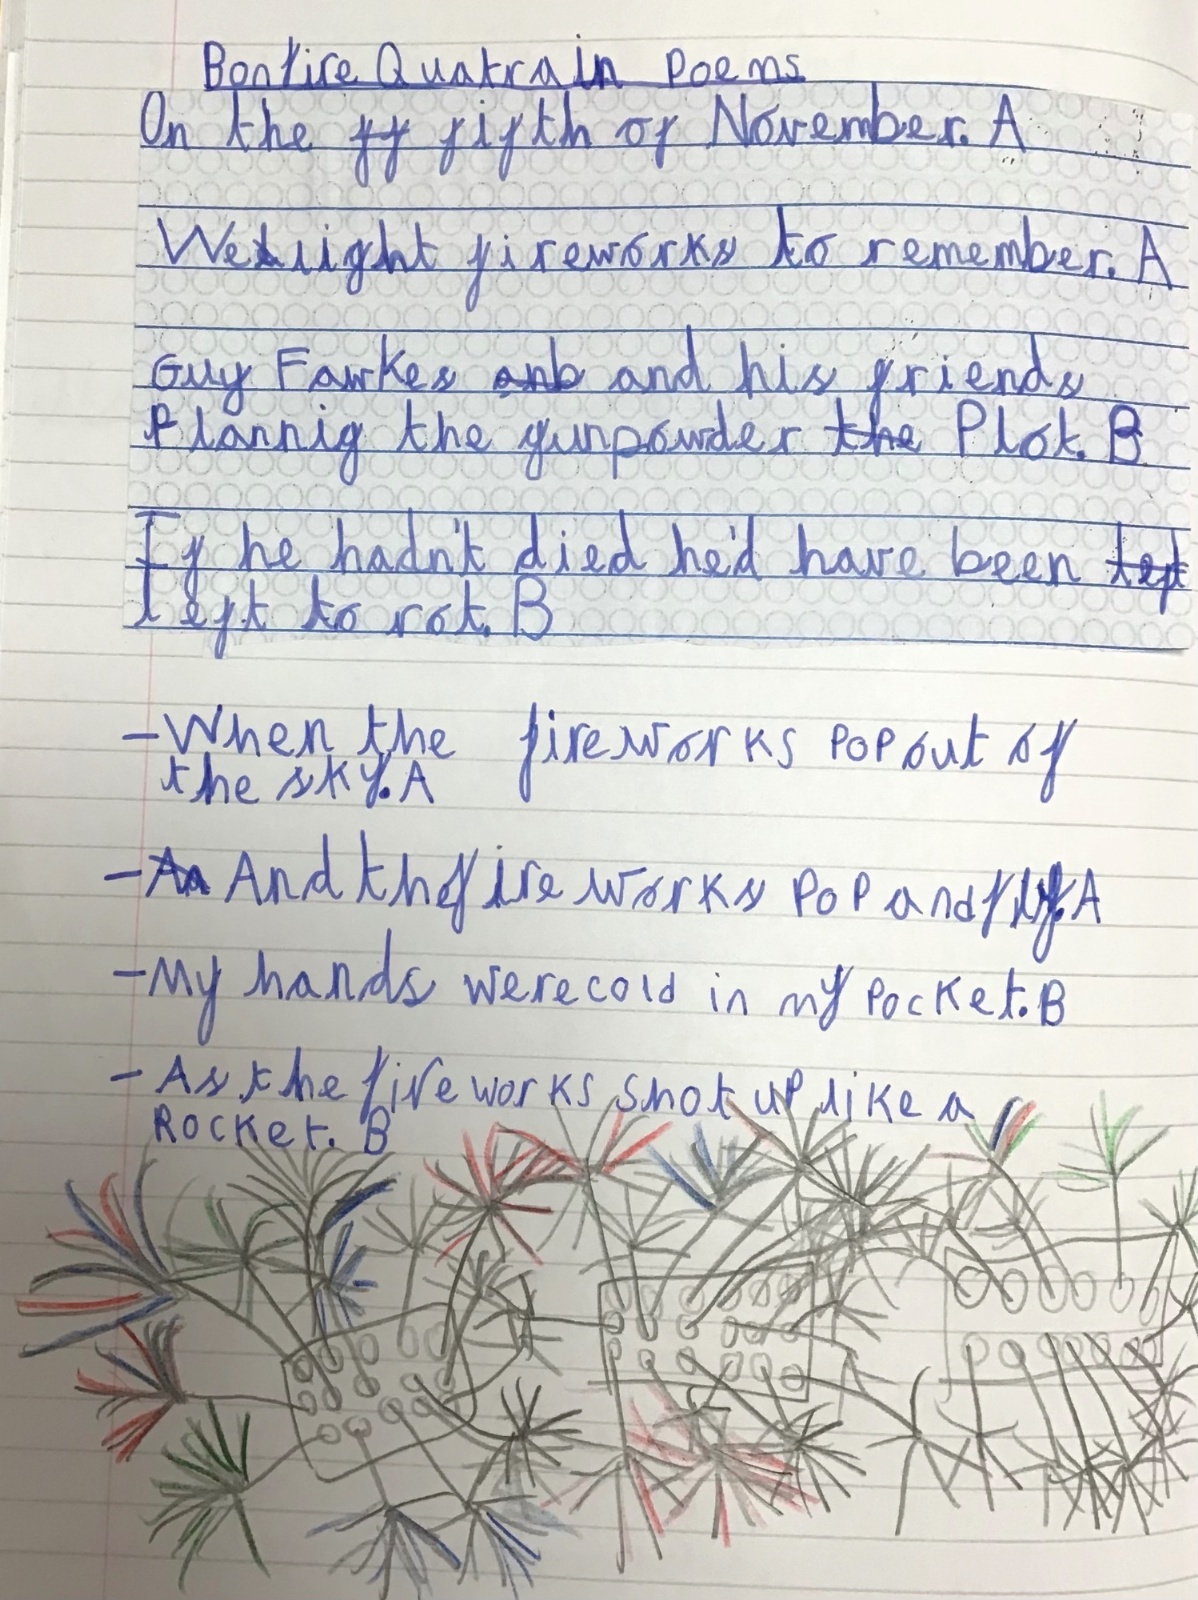 Bonfire Quatrain Poems
On the ff fifth of November. A
We light fireworks to remember. A
Guy Fawkes anb and his friends
Plannig the gunpowder the Plot. B
If he hadn't died he'd have been
left to rot. B
-When the fireworks POP out of
the sky. A
-An And the fireworks POP and fly. A
-My hands were cold in my Pocket. B
-As the fireworks shot up like a
Rocket. B